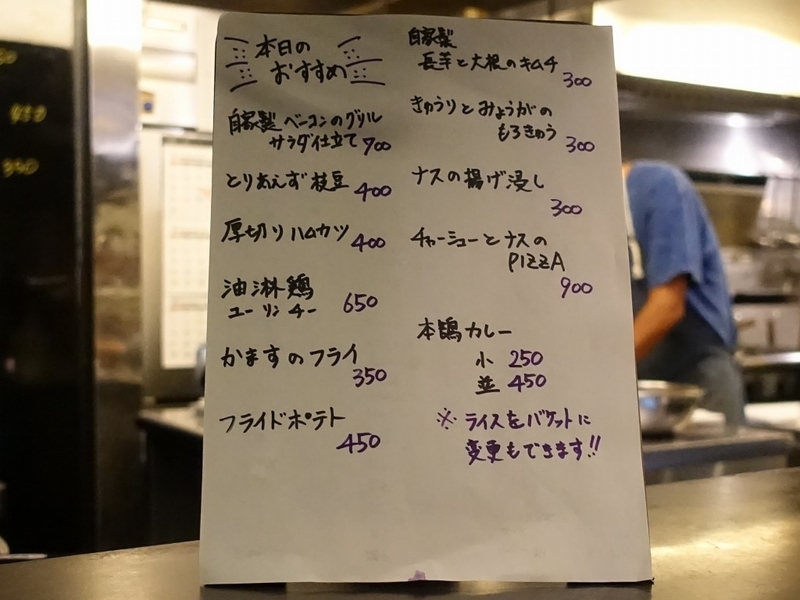 本日の
おすすめ
自家製 ベーコンのグリル
サラダ仕立て 900
とりあえず枝豆 400
厚切りハムカツ 400
油淋鶏
ユーリンチー 650
かますのフライ
350
フライドポテト
450
自家製
長芋と大根のキムチ
300
きゅうりとみょうがの
もろきゅう 300
ナスの揚げ浸し
300
チャーシューとナスの
PIZZA
900
本鶏カレー
小 250
並 450
※ ライスをバケットに
変更もできます!!
350